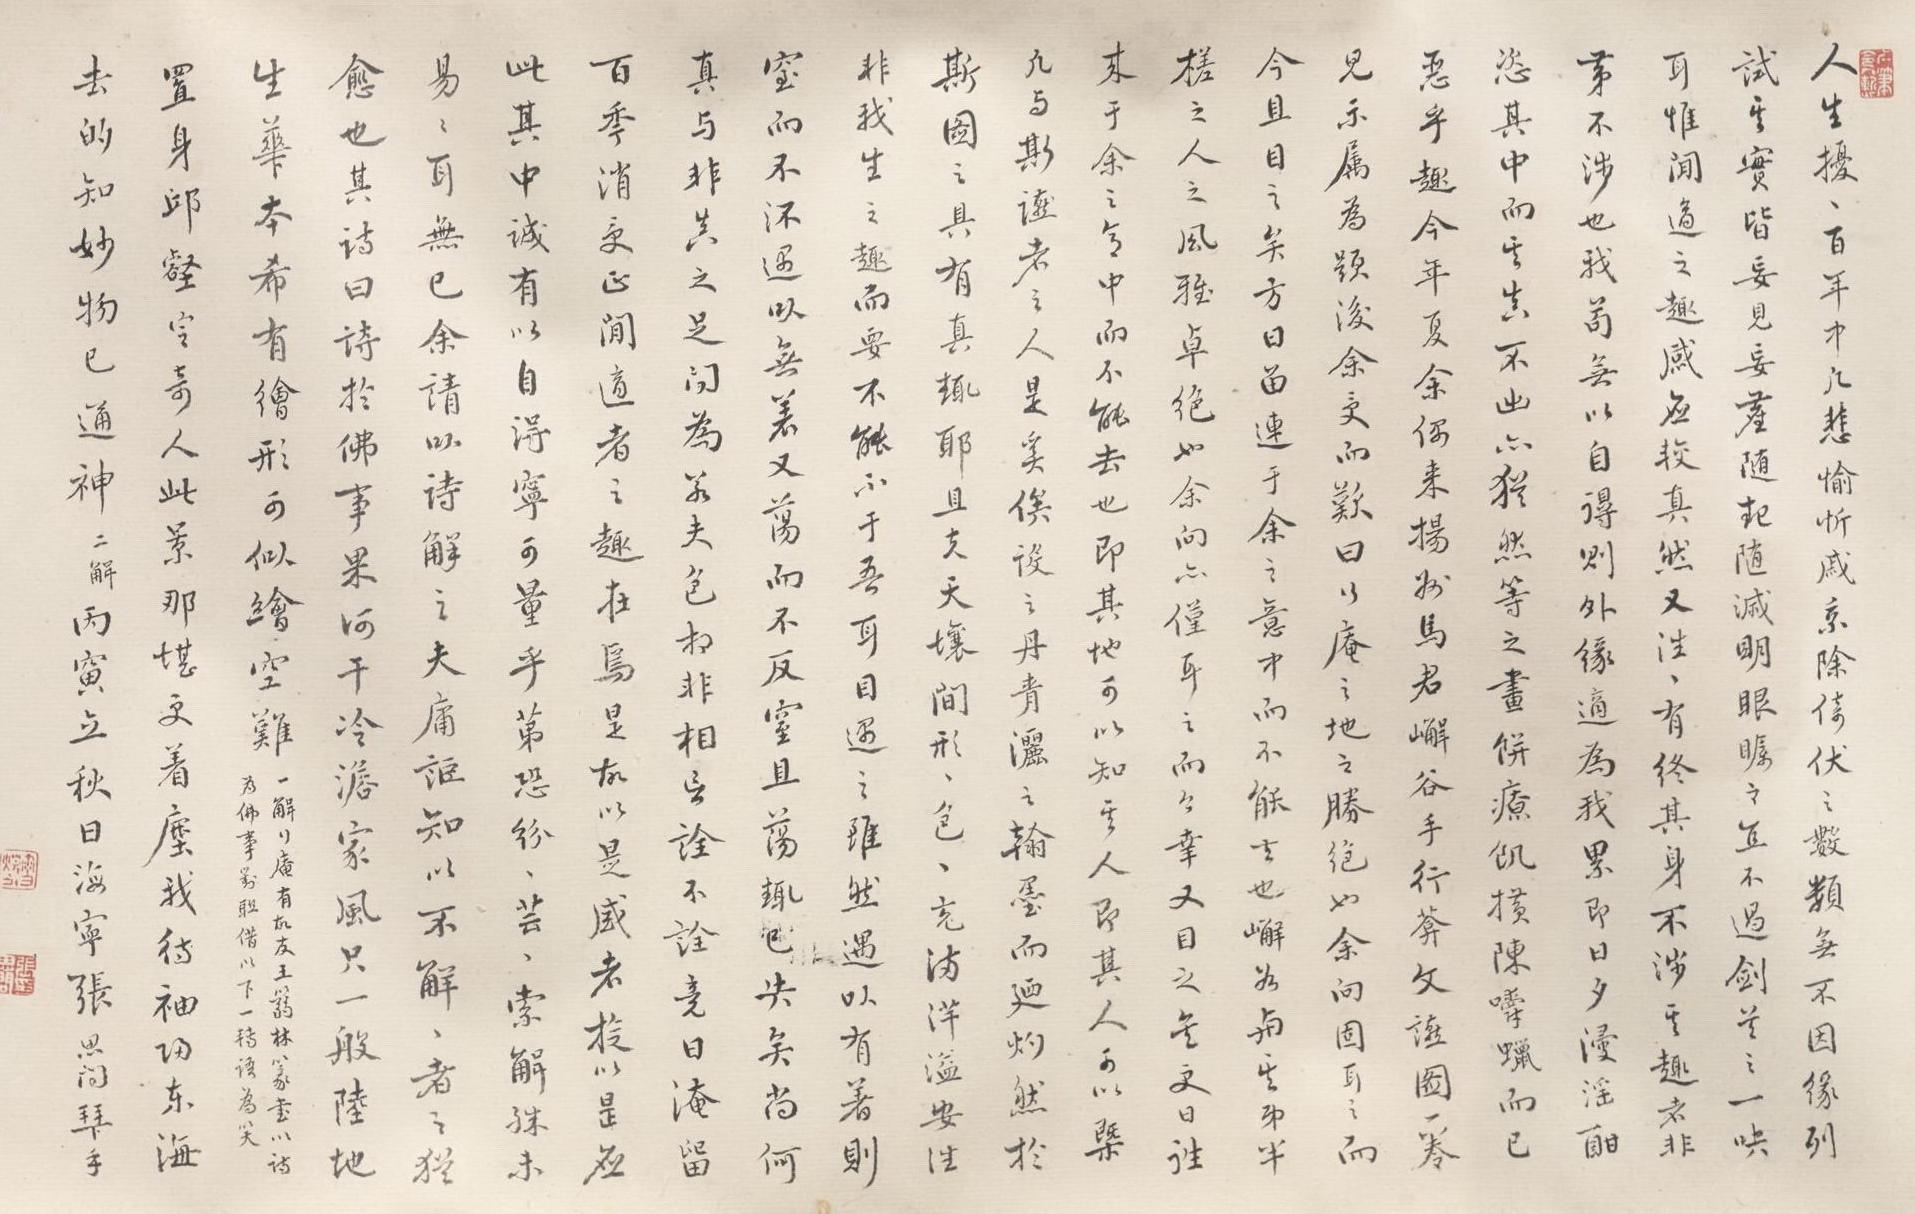 人生擾、百年中凡悲愉忻戚乘除倚伏之數類無不因緣列
試其實皆妄見妄產隨起隨滅明眼矚之直不過劍首之一吷
耳惟閒適之趣感應較真然又往、有終其身不涉其趣者非
第不涉也我苟無以自得則外緣適為我累即日夕浸淫酣
恣其中而其真不出亦猶然等之畫餅療飢橫陳嚼蠟而已
惡乎趣今年夏余偶來揚州馬君嶰谷手行菴文讌圖一卷
見示屬為題後余受而歎曰行庵之地之勝絕也余向固耳之而
今且目之矣方日留連于余之意中而不能去也嶰谷與其弟半
槎之人之風雅卓絕也余向亦僅耳之而今幸又目之矣更日往
來于余之意中而不能去也即其地可以知其人即其人可以槩
凡与斯讌者之人是奚俟設之丹青灑之翰墨而迺灼然於
斯圖之具有真趣耶且夫天壤間形、色、充滿洋溢安往
非我生之趣而要不能不于吾耳目遇之雖然遇以有著則
窒而不流遇以無著又蕩而不反窒且蕩趣已失矣尚何
真与非真之足問為若夫色相非相言詮不詮竟日淹留
百季消受正閒適者之趣在焉是故以是感者投以是應
此其中誠有以自得寧可量乎第恐紛、芸、索解殊未
易、耳無已余請以詩解之夫庸詎知以不解、者之猶
愈也其詩曰詩於佛事果何干冷澹家風只一般陸地
生華本希有繪形可似繪空難 一解行庵有故友王蒻林篆書以詩
為佛事對聯借以下一轉語為笑
置身邱壑定奇人此景那堪更着塵我待袖歸東海
去的知妙物已通神 二解 丙寅立秋日海寧張思問拜手